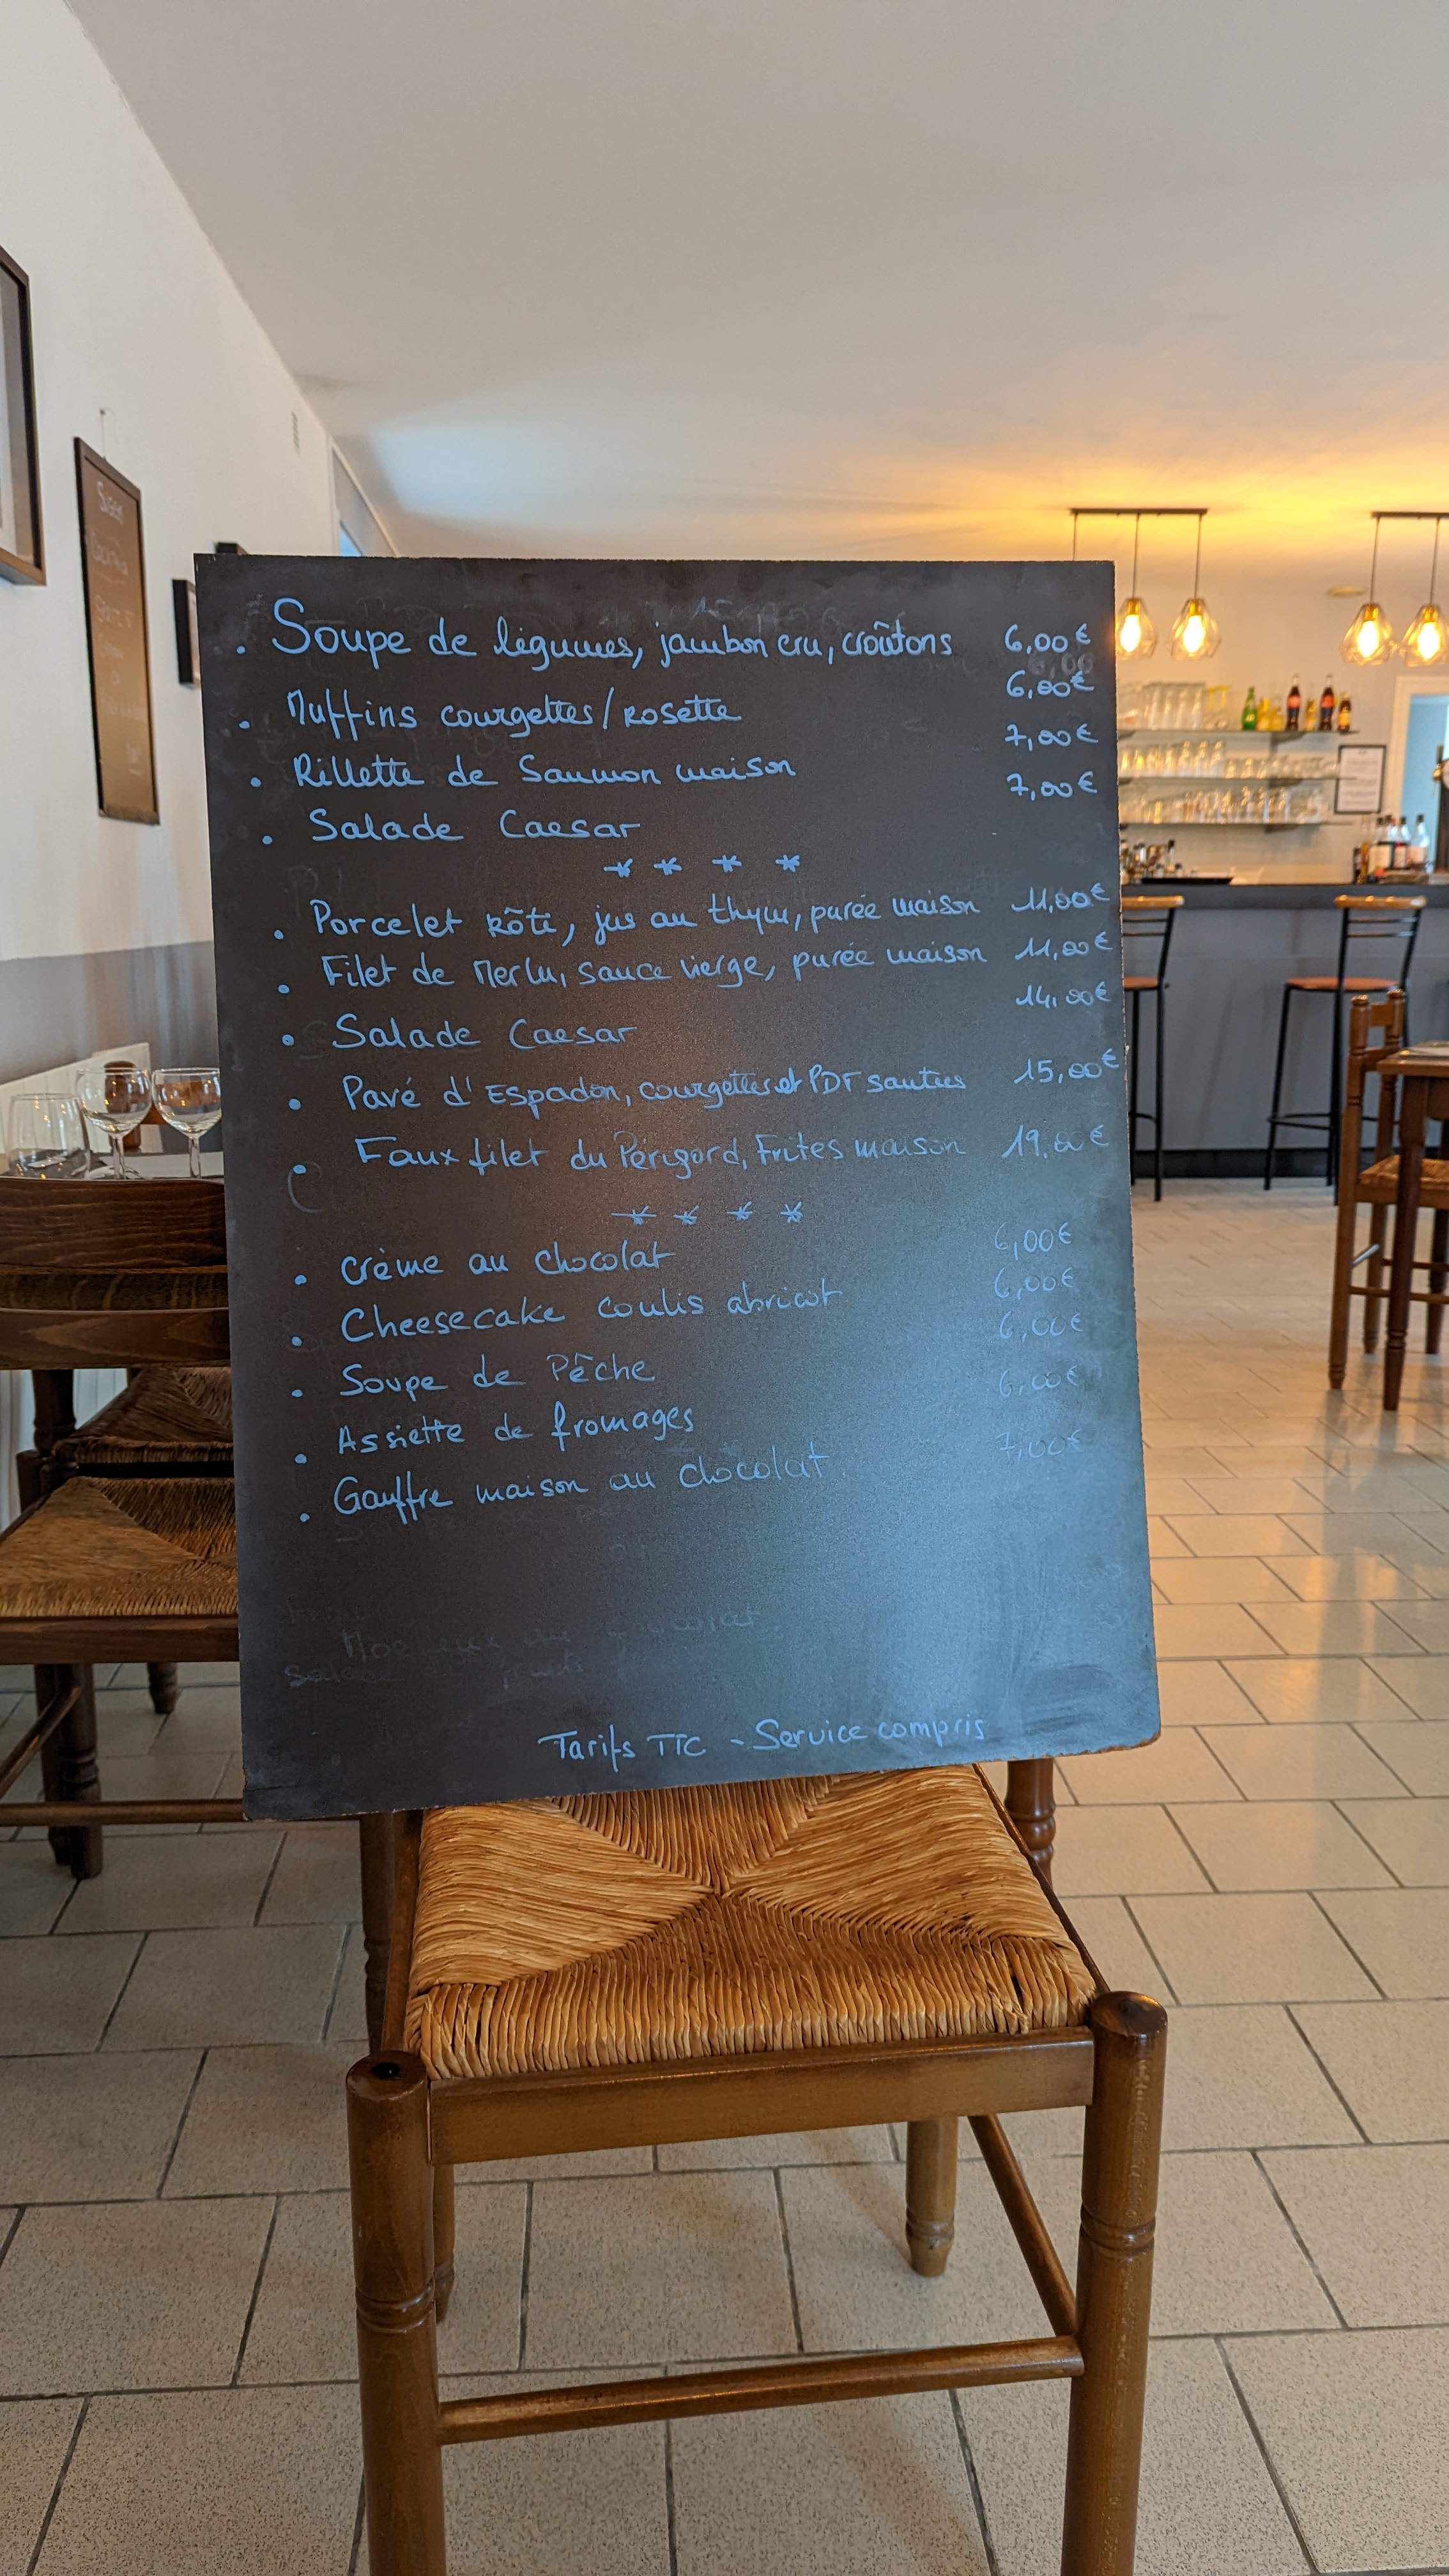 . Soupe de légumes, jambon cru, croûtons 6,00€
. Muffins courgettes/rosette 6,00€
. Rillette de Saumon maison 7,00€
. Salade Caesar 7,00€
* * * *
. Porcelet rôti, jus au thym, purée maison 11,00€
. Filet de Merlu, sauce vierge, purée maison 11,00€
. Salade Caesar 14,00€
. Pavé d'Espadon, courgettes et PDT sautées 15,00€
. Faux filet du Périgord, Frites maison 19,00€
* * * *
. Crème au chocolat 6,00€
. Cheesecake coulis abricot 6,00€
. Soupe de Pêche 6,00€
. Assiette de fromages 6,00€
. Gauffre maison au chocolat 7,00€
Tarifs TTC - Service compris